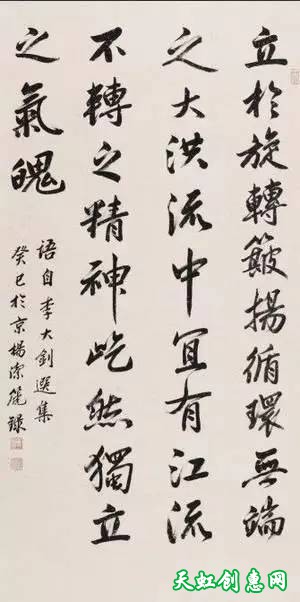 立於旋轉簸揚循環無端
之大洪流中宜有江流
不轉之精神屹然獨立
之氣魄
語自李大釗選集
癸巳於京楊潔篪錄
天虹创惠网